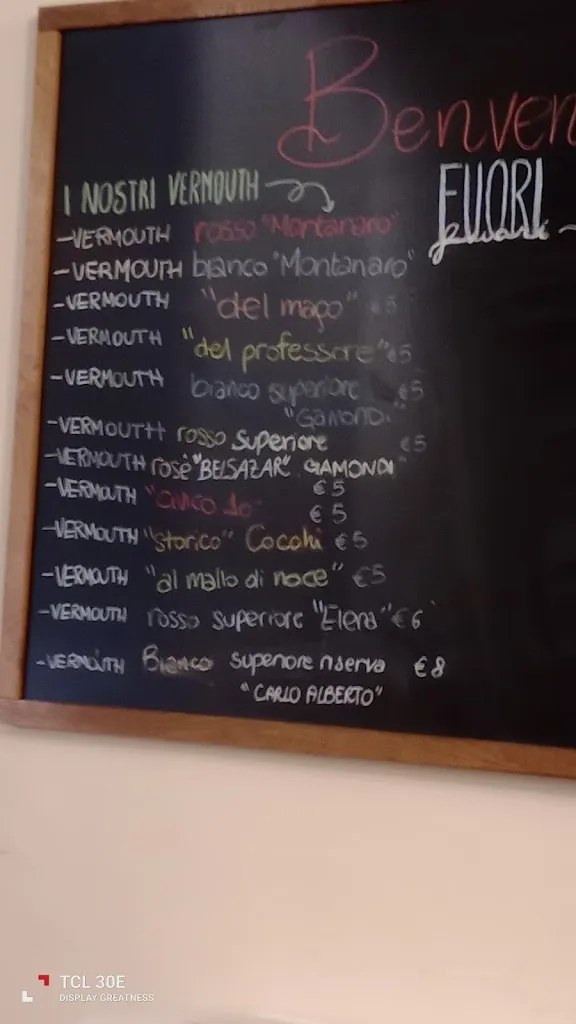 Benven
I NOSTRI VERMOUTH
FUORI
-VERMOUTH rosso "Montanaro"
-VERMOUTH bianco "Montanaro"
-VERMOUTH "del mago" €5
-VERMOUTH "del professore" €5
-VERMOUTH bianco superiore €5
"GAMONDI"
-VERMOUTH rosso superiore €5
-VERMOUTH rosè "BELSAZAR" GAMONDI"
€5
-VERMOUTH "civico 10" €5
-VERMOUTH "storico" Cocchi €5
-VERMOUTH "al mallo di noce" €5
-VERMOUTH rosso superiore "Elena" €6
-VERMOUTH Bianco superiore riserva €8
"CARLO ALBERTO"
TCL 30E
DISPLAY GREATNESS